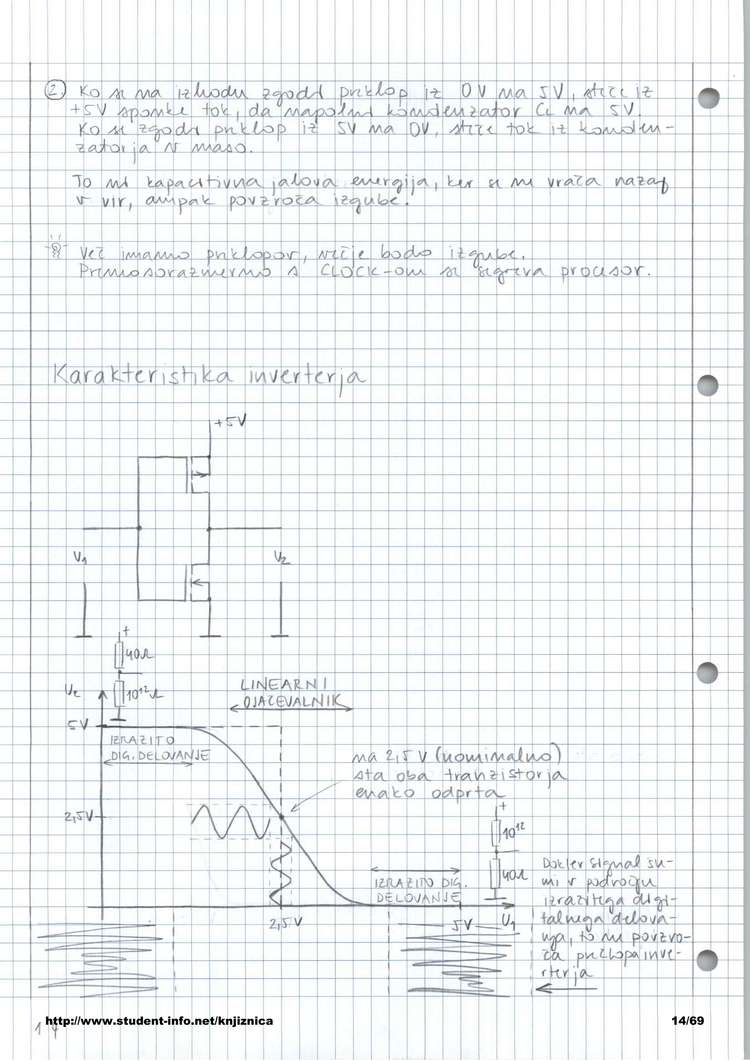 ② Ko se na izhodu zgodi preklop iz 0V na 5V, steče iz
+5V sponke tok, da napolni kondenzator CL na 5V.
Ko se zgodi preklop iz 5V na 0V, steče tok iz konden-
zatorja v maso.
To ni kapacitivna jalova energija, ker se ne vrača nazaj
v vir, ampak povzroča izgube.
Več imamo preklopov, večje bodo izgube.
Premosorazmerno s CLOCK-om se segreva procesor.
Karakteristika inverterja
+5V
V1
V2
+
40Ω
10¹²Ω
U2
5V
LINEARNI
OJAČEVALNIK
IZRAZITO
DIG. DELOVANJE
na 2,5V (nominalno)
sta oba tranzistorja
enako odprta
2,5V
+
10¹²
40Ω
IZRAZITO DIG.
DELOVANJE
Dokler signal šu-
mi v področju
izrazitega digi-
talnega delova-
nja, to ne povzro-
ča preklopa inve-
rterja
2,5V
5V
U1
http://www.student-info.net/knjiznica
14/69